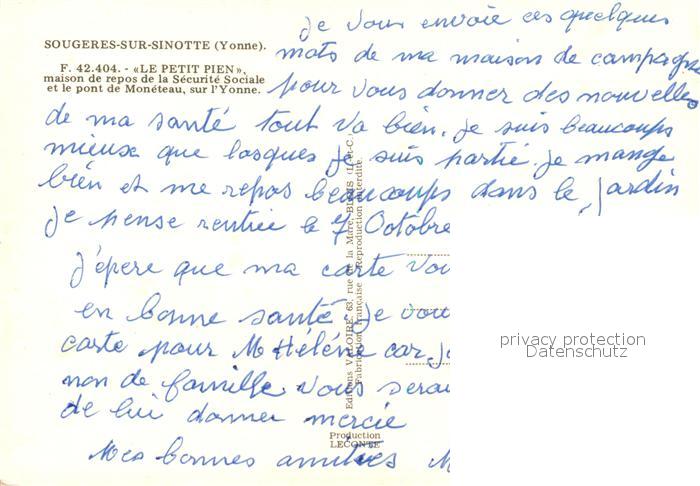 je vous envoie ces quelques
SOUGERES-SUR-SINOTTE (Yonne).
mots de ma maison de campagne
F. 42.404. - «LE PETIT PIEN»,
maison de repos de la Sécurité Sociale
et le pont de Monéteau, sur l'Yonne.
pour vous donner des nouvelles
de ma santé tout va bien. je suis beaucoups
mieux que losques je suis partie. je mange
bien et me repos beaucoups dans le jardin
je pense rentrée le 7 Octobre
j'épere que ma carte vou
en bonne santé. je vou
carte pour M Hélène car j
non de famille. Vous serai
de lui donner mercie
Mes bonnes amitiés M
Editions VALOIRE, 63, rue de la Mare, BLOIS (L.-et-C.)
Fabrication française - Reproduction interdite.
Production
LECONTE
privacy protection
Datenschutz